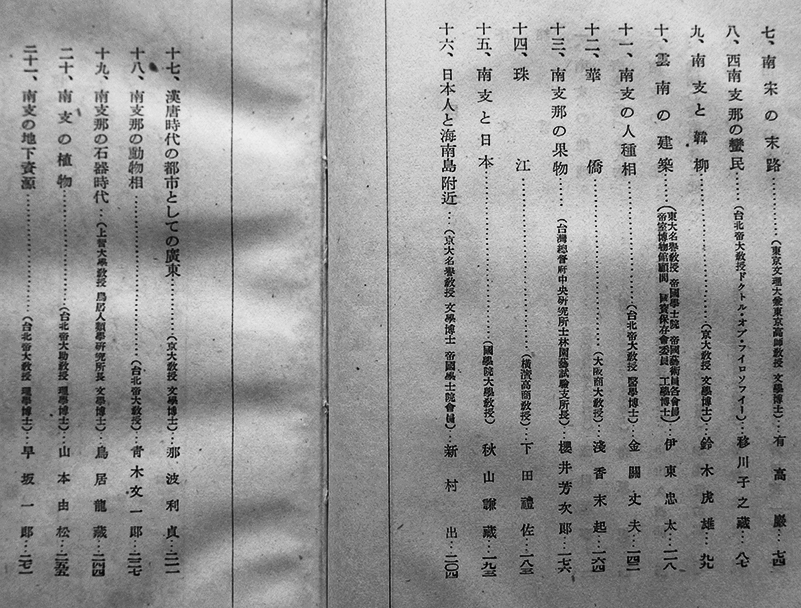 七、南宋の末路…………(東京文理大兼東京高師教授 文學博士)…有高巖…七四
八、西南支那の蠻民…………(台北帝大教授ドクトル・オブ・フイロソフイー)…移川子之藏…八七
九、南支と韓柳…………(京大教授 文學博士)…鈴木虎雄…九九
十、雲南の建築…………(東大名譽教授 帝國學士院 帝國藝術員各會員 帝室博物館顧問 國寶保存會委員 工學博士)…伊東忠太…一一八
十一、南支の人種相…………(台北帝大教授 醫學博士)…金關丈夫…一四二
十二、華僑…………(大阪商大教授)…淺香末起…一六四
十三、南支那の果物…………(台灣總督府中央研究所士林園藝試驗支所長)…櫻井芳次郎…一七六
十四、珠江…………(橫濱高商教授)…下田禮佐…一八三
十五、南支と日本…………(國學院大學教授)…秋山謙藏…一九三
十六、日本人と海南島附近…(京大名譽教授 文學博士 帝國學士院會員)…新村出…二〇四
十七、漢唐時代の都市としての廣東…………(京大教授 文學博士)…那波利貞…二一一
十八、南支那の動物相…………(台北帝大教授)…靑木文一郎…二三七
十九、南支那の石器時代…(上智大學教授 鳥居人類學研究所長 文學博士)…鳥居龍藏…二四四
二十、南支の植物…………(台北帝大助教授 理學博士)…山本由松…二五五
二十一、南支の地下資源…………(台北帝大教授 理學博士)…早坂一郎…二七一